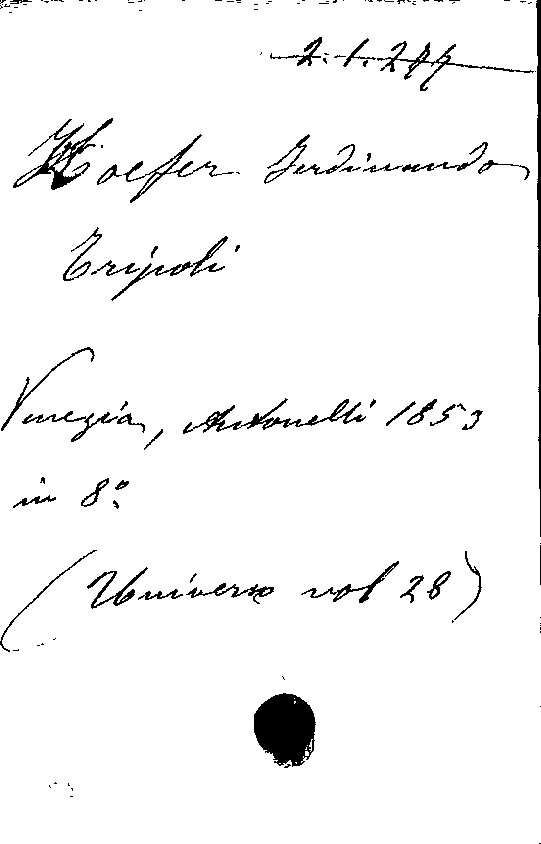 2.1.277
Hoefer Ferdinando
Tripoli
Venezia, Antonelli 1853
in 8°.
(Universo vol 28)